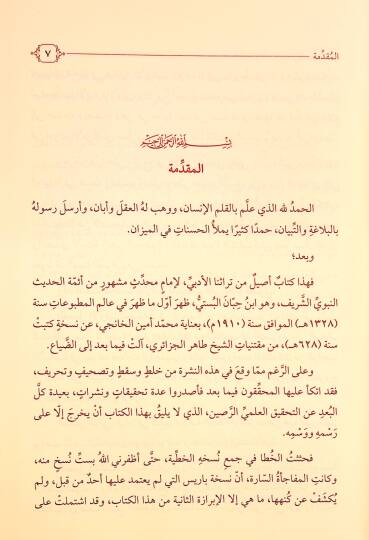 المُقدِّمة
٧
بِسْمِ اللَّهِ الرَّحْمَنِ الرَّحِيمِ
المقدِّمة
الحمدُ لله الذي علَّم بالقلمِ الإنسان، ووهب لهُ العقلَ وأبان، وأرسلَ رسولهُ
بالبلاغةِ والتِّبيان، حمدًا كثيرًا يملأُ الحسناتِ في الميزان.
وبعد؛
فهذا كتابٌ أصيلٌ من تراثنا الأدبيِّ، لإمامٍ محدِّثٍ مشهورٍ من أئمّة الحديث
النبويِّ الشَّريف، وهو ابنُ حِبَّانَ البُستيُّ، ظهرَ أوّل ما ظهرَ في عالم المطبوعاتِ سنة
(١٣٢٨هـ) الموافق سنة (١٩١٠م)، بعناية محمّد أمين الخانجي، عن نسخةٍ كتبتْ
سنة (٦٢٨هـ)، من مقتنياتِ الشيخ طاهر الجزائري، آلتْ فيما بعد إلى الضَّياع.
وعلى الرَّغم ممّا وقعَ في هذه النشرة من خلطٍ وسقطٍ وتصحيفٍ وتحريف،
فقد اتكأ عليها المحقِّقون فيما بعد فأصدروا عدة تحقيقاتٍ ونشراتٍ، بعيدة كلَّ
البُعدِ عن التحقيق العلميِّ الرَّصين، الذي لا يليقُ بهذا الكتاب أنْ يخرجَ إلَّا على
رَسْمِهِ ووَسْمِه.
فحثثتُ الخُطا في جمع نُسخهِ الخطِّية، حتَّى أظفرني اللهُ بستِّ نُسخٍ منه،
وكانتِ المفاجأةُ السّارة، أنّ نسخة باريس التي لم يعتمد عليها أحدٌ من قبل، ولم
يُكشَفْ عن كُنهها، ما هي إلا الإبرازة الثانية من هذا الكتاب، وقد اشتملتْ على